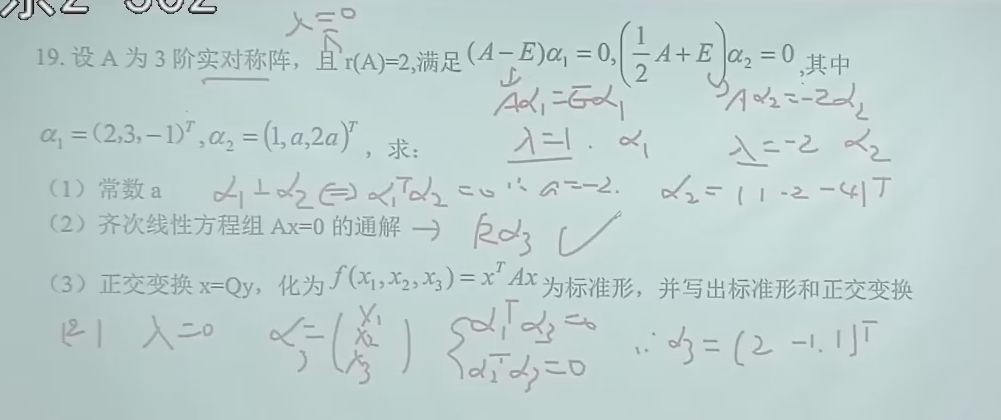 λ=0
19. 设 A 为 3 阶实对称阵，且 r(A)=2,满足 (A−E)α₁=0,(1/2 A+E)α₂=0 ,其中
Aα₁=Eα₁ Aα₂=-2α₂
α₁=(2,3,−1)ᵀ,α₂=(1,a,2a)ᵀ ，求：
λ=1. α₁ λ=-2 α₂
（1）常数 a α₁⊥α₂⇔α₁ᵀα₂=0 ∵ a=-2. α₂=(1 -2 -4)ᵀ
（2）齐次线性方程组 Ax=0 的通解 → kα₃ ✓
（3）正交变换 x=Qy，化为 f(x₁,x₂,x₃)=xᵀAx 为标准形，并写出标准形和正交变换
(2) λ=0 α₃=(x₁ x₂ x₃) {α₁ᵀα₃=0 α₂ᵀα₃=0 ∵ α₃=(2 -1.1)ᵀ